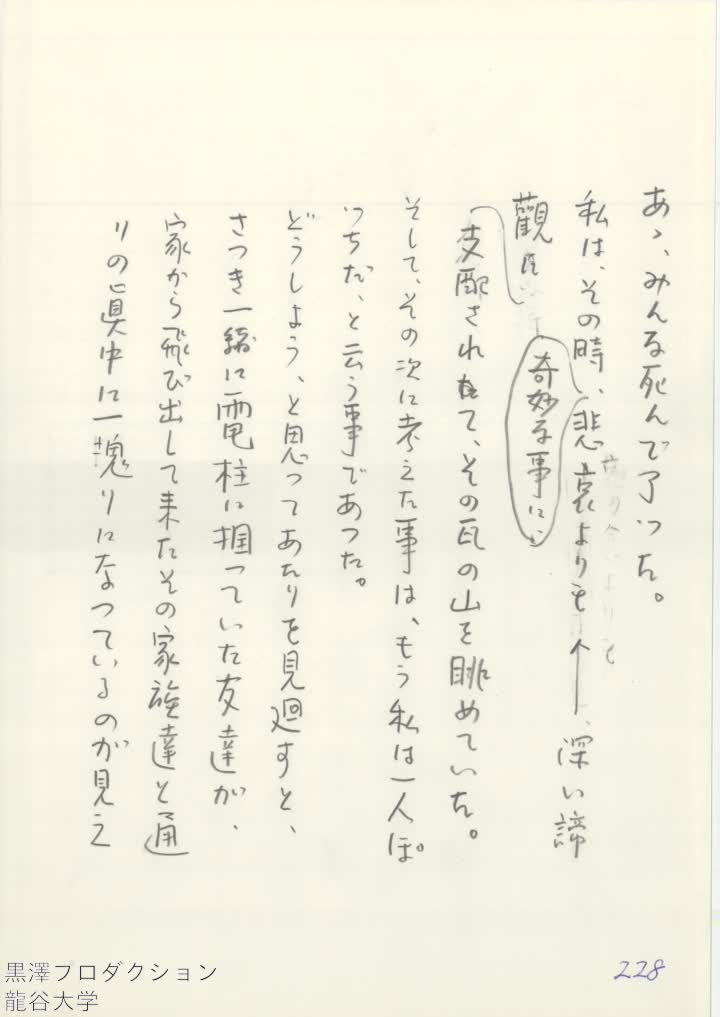 あゝ、みんな死んで了つた。
私は、その時、悲哀よりも、深い諦
觀に
奇妙な事に、
支配されて、その瓦の山を眺めていた。
そして、その次に考えた事は、もう私は一人ぽ
つちだ、と云う事であつた。
どうしよう、と思つてあたりを見廻すと、
さつき一緒に電柱に掴つていた友達が、
家から飛び出して来たその家族達と通
りの眞中に一塊りになつているのが見え
228
黒澤プロダクション
龍谷大学